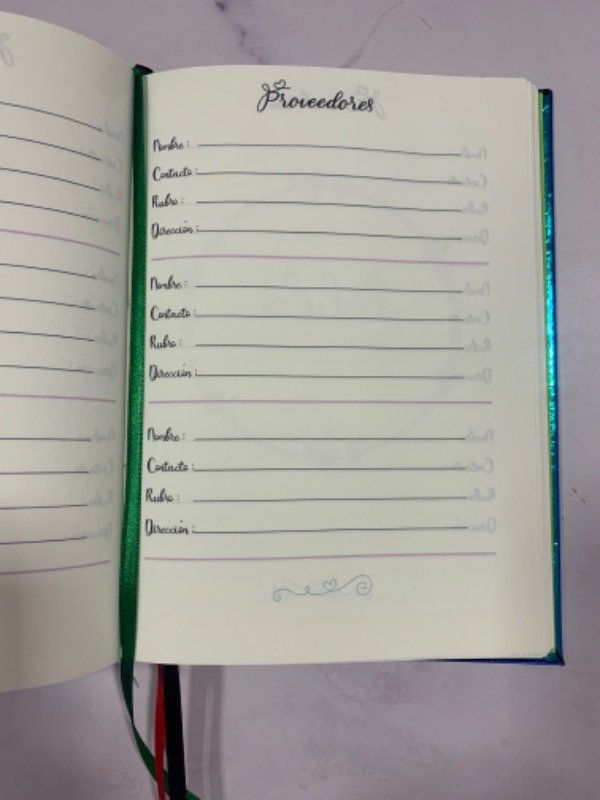 Proveedores
Nombre:
Contacto:
Rubro:
Dirección:
Nombre:
Contacto:
Rubro:
Dirección:
Nombre:
Contacto:
Rubro:
Dirección: